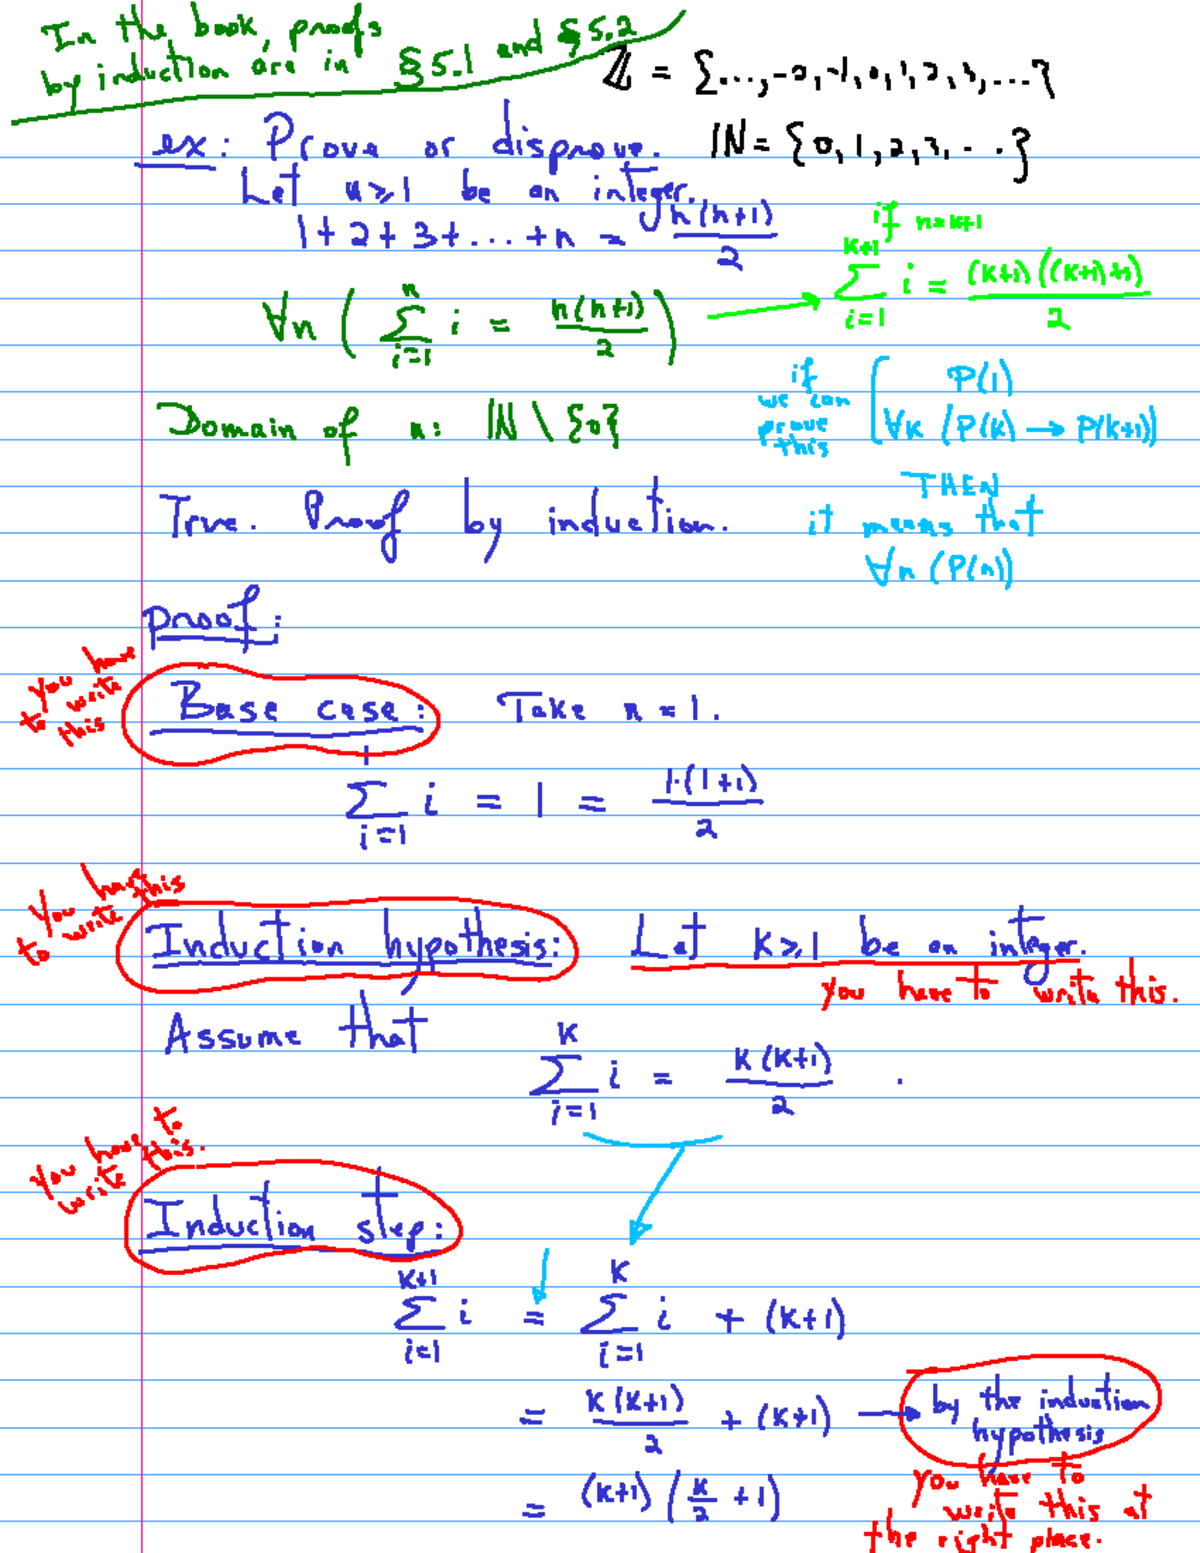 In the book, proofs
by induction are in §5.1 and §5.2
ℤ = {..., -2, -1, 0, 1, 2, 3, ...}
ℕ = {0, 1, 2, 3, ...}
ex: Prove or disprove.
Let n ≥ 1 be an integer.
1 + 2 + 3 + ... + n = n(n+1)/2
if n=k+1
∑_{i=1}^{k+1} i = (k+1)((k+1)+1)/2
∀n ( ∑_{i=1}^{n} i = n(n+1)/2 )
Domain of n: ℕ \ {0}
if we can prove this
P(1)
∀k (P(k) → P(k+1))
THEN
it means that
∀n (P(n))
True. Proof by induction.
proof:
you have to write this
Base case: Take n = 1.
∑_{i=1}^{1} i = 1 = 1·(1+1)/2
you have to write this
Induction hypothesis: Let k ≥ 1 be an integer.
you have to write this.
Assume that
∑_{i=1}^{k} i = k(k+1)/2 .
you have to write this.
Induction step:
∑_{i=1}^{k+1} i = ∑_{i=1}^{k} i + (k+1)
= k(k+1)/2 + (k+1) → by the induction hypothesis
you have to
write this at
the right place.
= (k+1)(k/2 + 1)